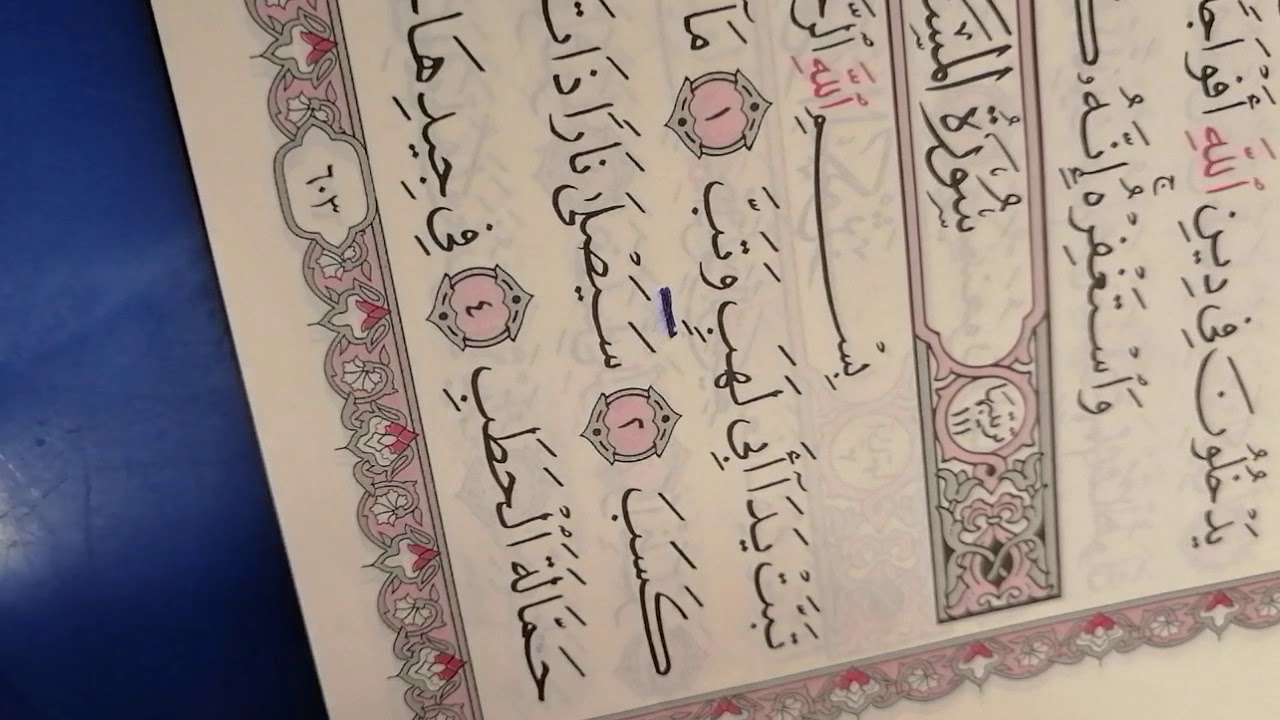 يَدْخُلُونَ فِى دِينِ ٱللَّهِ أَفْوَاجًا
وَٱسْتَغْفِرْهُ ۚ إِنَّهُۥ
سُورَةُ
بِسْمِ ٱللَّهِ
تَبَّتْ يَدَآ أَبِى لَهَبٍ وَتَبَّ ١ مَآ
كَسَبَ ٢ سَيَصْلَىٰ نَارًا ذَاتَ
حَمَّالَةَ ٱلْحَطَبِ ٤ فِى جِيدِهَا
٦٠٣